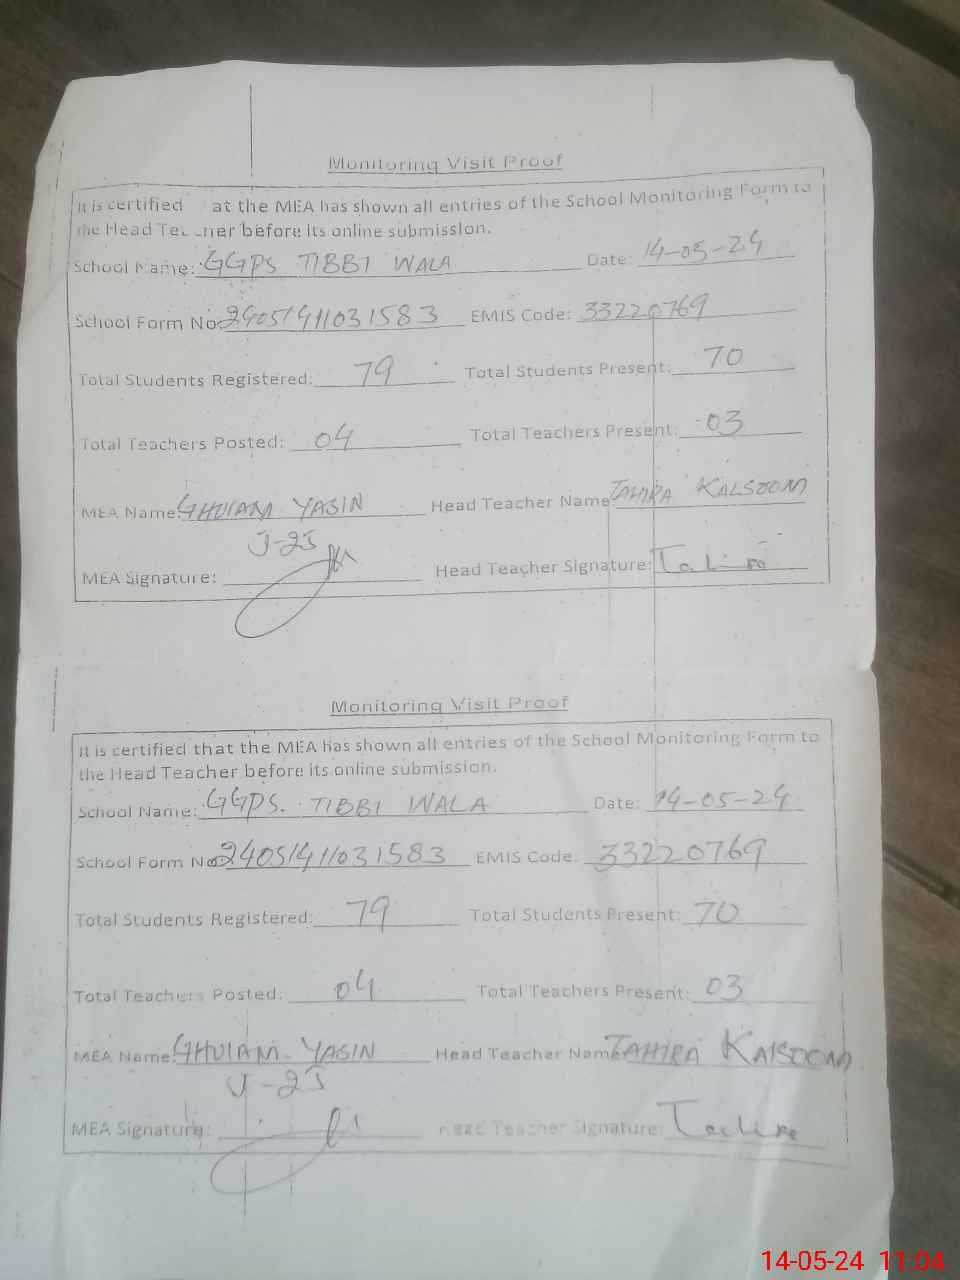 Monitoring Visit Proof
It is certified at the MEA has shown all entries of the School Monitoring Form to
the Head Teacher before its online submission.
School Name: GGPS TIBBI WALA Date: 14-05-24
School Form No: 24051411031583 EMIS Code: 33220769
Total Students Registered: 79 Total Students Present: 70
Total Teachers Posted: 04 Total Teachers Present: 03
MEA Name: GHULAM YASIN Head Teacher Name: TAHIRA KALSOOM
J-25
MEA Signature: Head Teacher Signature: Tahira
Monitoring Visit Proof
It is certified that the MEA has shown all entries of the School Monitoring Form to
the Head Teacher before its online submission.
School Name: GGPS. TIBBI WALA Date: 14-05-24
School Form No: 24051411031583 EMIS Code: 33220769
Total Students Registered: 79 Total Students Present: 70
Total Teachers Posted: 04 Total Teachers Present: 03
MEA Name: GHULAM YASIN Head Teacher Name: TAHIRA KALSOOM
J-25
MEA Signature: Head Teacher Signature: Tahira
14-05-24 11:04